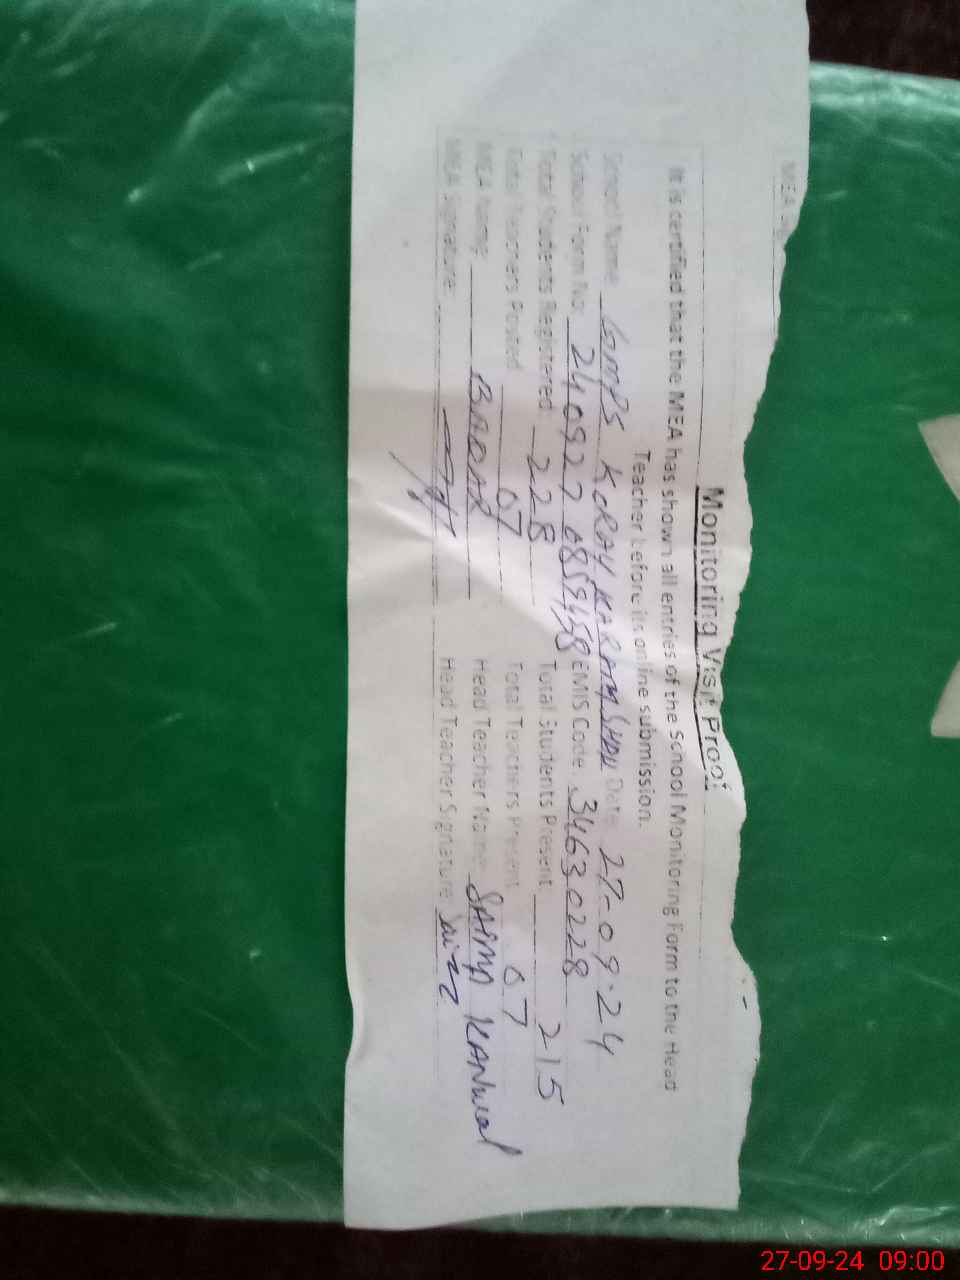 MEA
Monitoring Visit Proof
It is certified that the MEA has shown all entries of the School Monitoring Form to the Head
Teacher before its online submission.
School Name: GMPS KORAY KARAM SHAH Date: 27-09-24
School Form No: 240927 0859458 EMIS Code: 34630228
Total Students Registered: 228 Total Students Present: 215
Total Teachers Posted: 07 Total Teachers Present: 07
MEA Name: BADAR Head Teacher Name: SAIMA KANWAL
MEA Signature: Head Teacher Signature:
27-09-24 09:00